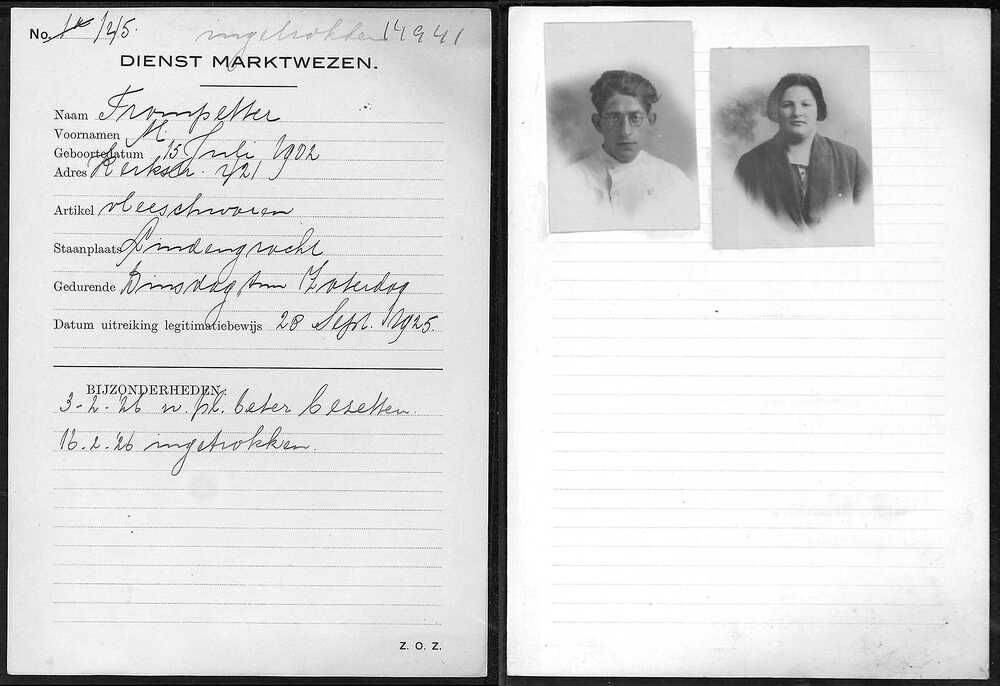 No. 1/45. ingetrokken 14941
DIENST MARKTWEZEN.
Naam Trompetter
Voornamen M.
Geboortedatum 15 Juli 1902
Adres Kerkstr. 421
Artikel vleeschwaren
Staanplaats Lindengracht
Gedurende Dinsdag t/m Zaterdag
Datum uitreiking legitimatiebewijs 28 Sept. 1925.
BIJZONDERHEDEN:
3-2-'26 n. pl. beter bezetten.
16-2-'26 ingetrokken.
Z. O. Z.